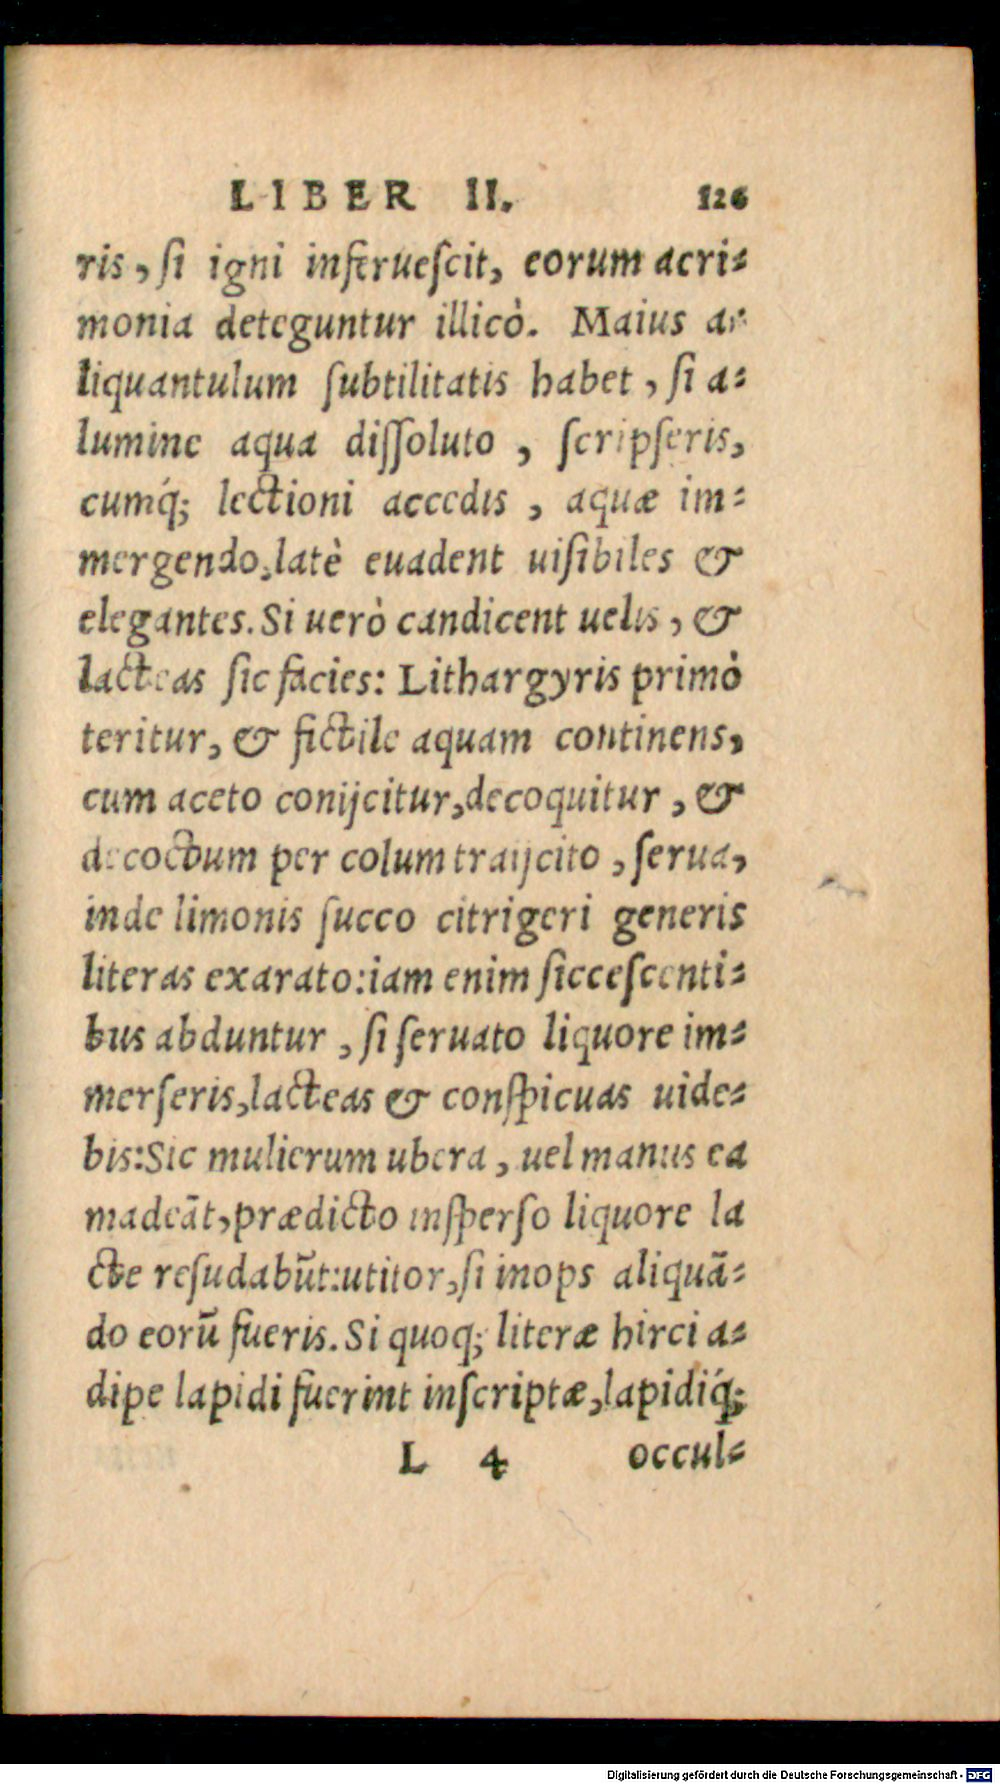 LIBER II. 126
ris, ſi igni inferueſcit, eorum acri⸗
monia deteguntur illicò. Maius a⸗
liquantulum ſubtilitatis habet, ſi a⸗
lumine aqua diſſoluto, ſcripſeris,
cumq́; lectioni accedis, aquæ im⸗
mergendo, latè euadent uiſibiles &
elegantes. Si uerò candicent uelis, &
lacteas ſic facies: Lithargyris primò
teritur, & fictile aquam continens,
cum aceto conijcitur, decoquitur, &
decoctum per colum traijcito, ſerua,
inde limonis ſucco citrigeri generis
literas exarato: iam enim ſiccеſcenti⸗
bus abduntur, ſi ſeruato liquore im⸗
merſeris, lacteas & conſpicuas uide⸗
bis: Sic mulierum ubera, uel manus ea
madeãt, prædicto inſperſo liquore la
cte reſudabũt: utitor, ſi inops aliquã⸗
do eorũ fueris. Si quoq; literæ hirci a⸗
dipe lapidi fuerint inſcriptæ, lapidiq́;
L 4 occul⸗
Digitalisierung gefördert durch die Deutsche Forschungsgemeinschaft - DFG